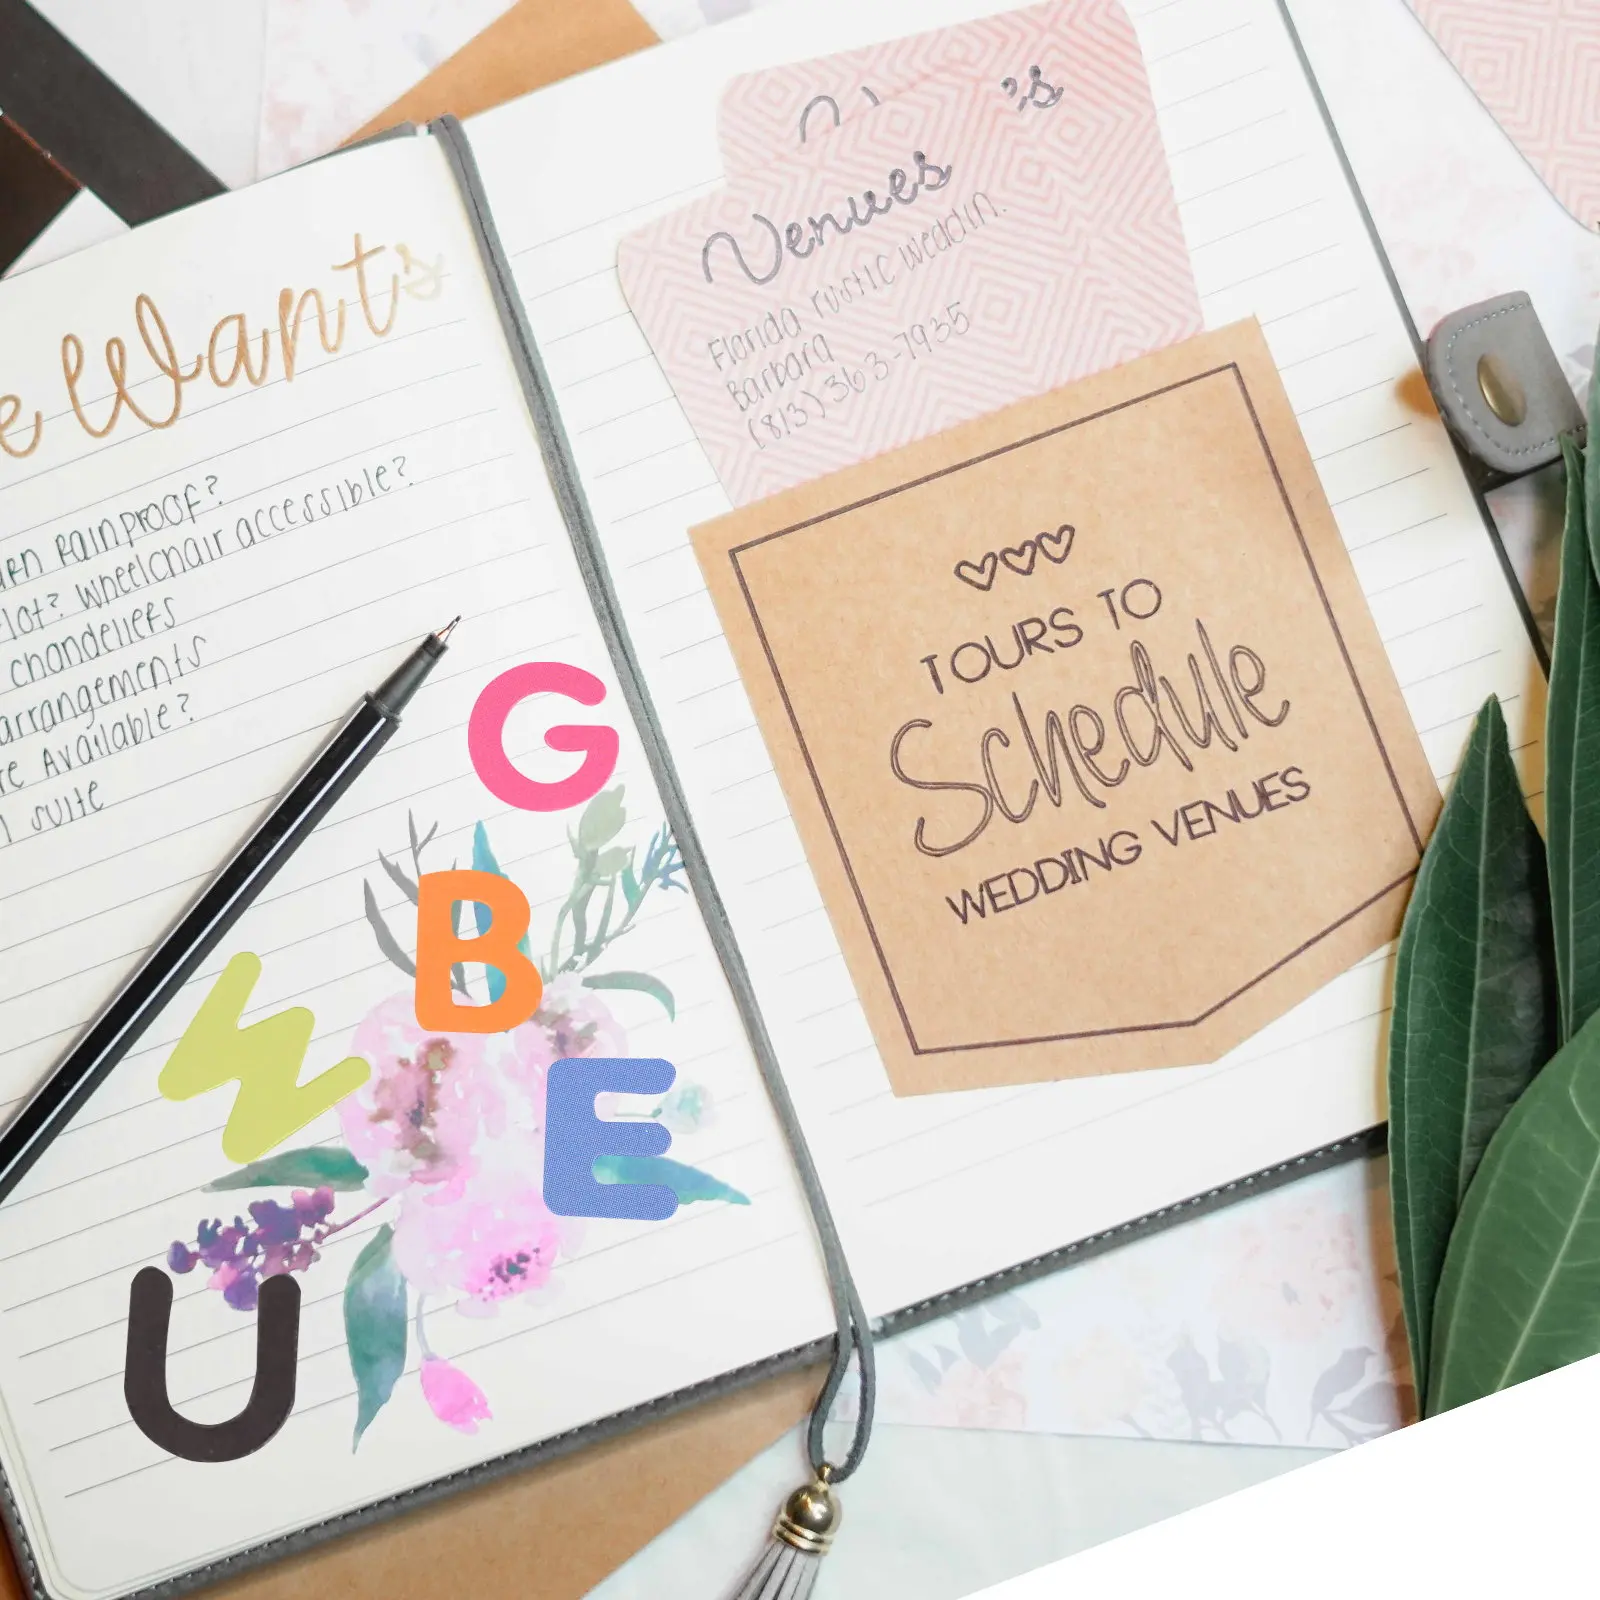 e Wants
rainproof?
lot? wheelchair accessible?
chandeliers
arrangements
re Available?
suite
G
B
E
U
's
Venues
Florida rustic weddin.
Barbara
(813) 363-7935
TOURS TO
Schedule
WEDDING VENUES